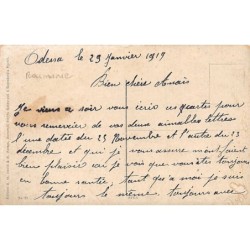 Odessa le 29 Janvier 1919
Roumanie
Bien chère Anaïs
Je ce soir vous écris ces quarte pour
vous remercier de vos deux aimables lettres
l'une datée du 25 Novembre et l'autre du 23
décembre et qui je vous assure m'ont fait
bien plaisir car je vois que vous ête toujours
en bonne santé, tant qu'a moi je suis
toujours le même toujours avec